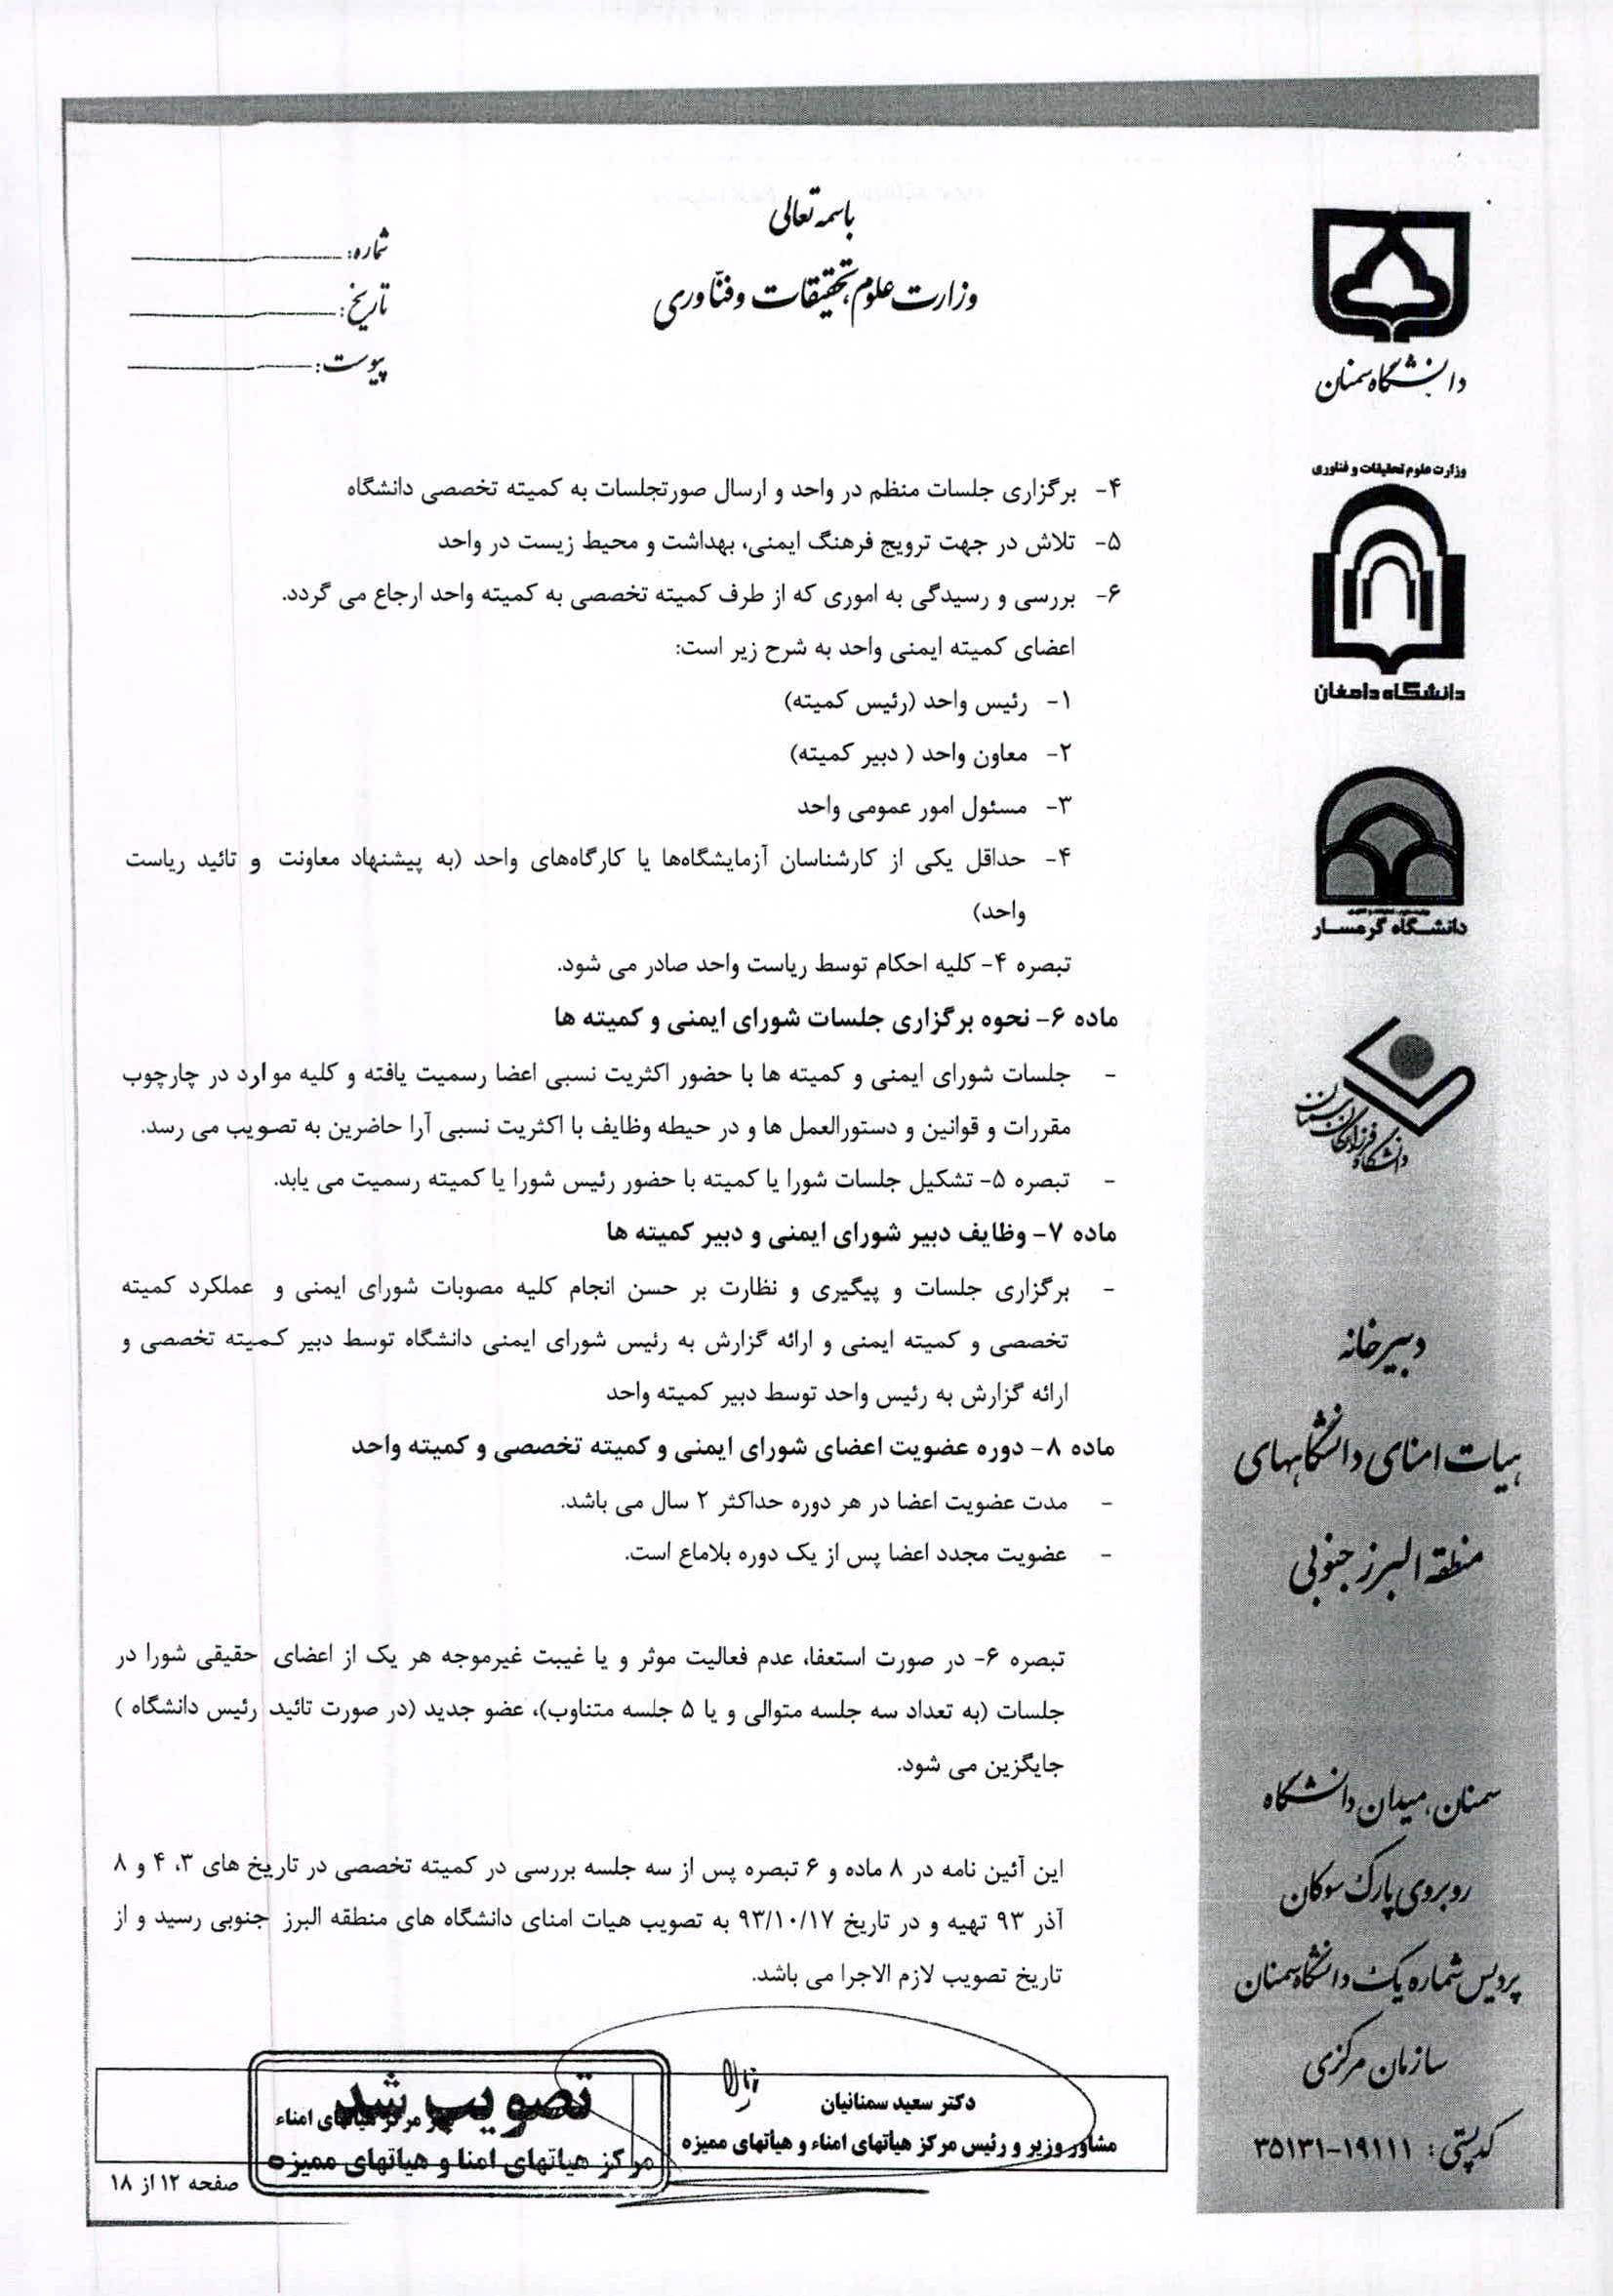 باسمه تعالی
وزارت علوم، تحقیقات و فنّاوری
شماره:
تاریخ:
پیوست:
دانشگاه سمنان
وزارت علوم تحقیقات و فناوری
دانشگاه دامغان
دانشگاه گرمسار
دانشگاه فرزانگان سمنان
دبیرخانه
هیات امنای دانشگاههای
منطقه البرز جنوبی
سمنان، میدان دانشگاه
روبروی پارک سوکان
پردیس شماره یک دانشگاه سمنان
سازمان مرکزی
کدپستی: ۱۹۱۱۱-۳۵۱۳۱
۴- برگزاری جلسات منظم در واحد و ارسال صورتجلسات به کمیته تخصصی دانشگاه
۵- تلاش در جهت ترویج فرهنگ ایمنی، بهداشت و محیط زیست در واحد
۶- بررسی و رسیدگی به اموری که از طرف کمیته تخصصی به کمیته واحد ارجاع می گردد.
اعضای کمیته ایمنی واحد به شرح زیر است:
۱- رئیس واحد (رئیس کمیته)
۲- معاون واحد ( دبیر کمیته)
۳- مسئول امور عمومی واحد
۴- حداقل یکی از کارشناسان آزمایشگاه‌ها یا کارگاه‌های واحد (به پیشنهاد معاونت و تائید ریاست
واحد)
تبصره ۴- کلیه احکام توسط ریاست واحد صادر می شود.
ماده ۶- نحوه برگزاری جلسات شورای ایمنی و کمیته ها
- جلسات شورای ایمنی و کمیته ها با حضور اکثریت نسبی اعضا رسمیت یافته و کلیه موارد در چارچوب
مقررات و قوانین و دستورالعمل ها و در حیطه وظایف با اکثریت نسبی آرا حاضرین به تصویب می رسد.
- تبصره ۵- تشکیل جلسات شورا یا کمیته با حضور رئیس شورا یا کمیته رسمیت می یابد.
ماده ۷- وظایف دبیر شورای ایمنی و دبیر کمیته ها
- برگزاری جلسات و پیگیری و نظارت بر حسن انجام کلیه مصوبات شورای ایمنی و عملکرد کمیته
تخصصی و کمیته ایمنی و ارائه گزارش به رئیس شورای ایمنی دانشگاه توسط دبیر کمیته تخصصی و
ارائه گزارش به رئیس واحد توسط دبیر کمیته واحد
ماده ۸- دوره عضویت اعضای شورای ایمنی و کمیته تخصصی و کمیته واحد
- مدت عضویت اعضا در هر دوره حداکثر ۲ سال می باشد.
- عضویت مجدد اعضا پس از یک دوره بلاماع است.
تبصره ۶- در صورت استعفا، عدم فعالیت موثر و یا غیبت غیرموجه هر یک از اعضای حقیقی شورا در
جلسات (به تعداد سه جلسه متوالی و یا ۵ جلسه متناوب)، عضو جدید (در صورت تائید رئیس دانشگاه )
جایگزین می شود.
این آئین نامه در ۸ ماده و ۶ تبصره پس از سه جلسه بررسی در کمیته تخصصی در تاریخ های ۳، ۴ و ۸
آذر ۹۳ تهیه و در تاریخ ۹۳/۱۰/۱۷ به تصویب هیات امنای دانشگاه های منطقه البرز جنوبی رسید و از
تاریخ تصویب لازم الاجرا می باشد.
دکتر سعید سمنانیان
مشاور وزیر و رئیس مرکز هیأتهای امناء و هیأتهای ممیزه
تصویب شد
مهر مرکز هیأتهای امناء
مرکز هیاتهای امنا و هیاتهای ممیزه
صفحه ۱۲ از ۱۸